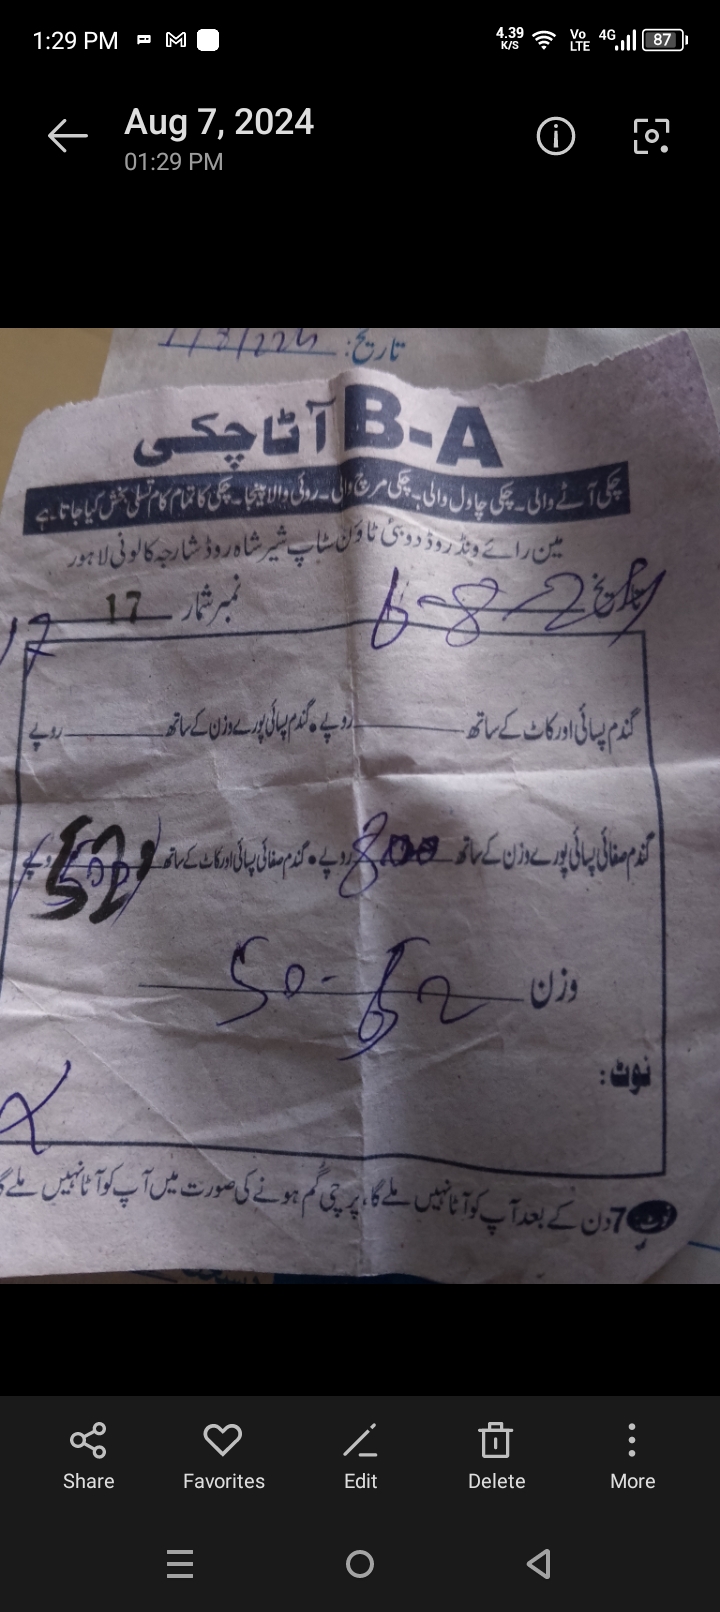 1:29 PM
4.39 K/S Vo LTE 4G 87
Aug 7, 2024
01:29 PM
تاریخ:
B-A آٹا چکی
چکی آٹے والی۔ چکی چاول والی۔ چکی مرچ والی۔ روئی والا پینجا۔ چکی کا تمام کام تسلی بخش کیا جاتا ہے
مین رائے ونڈ روڈ دوبئی ٹاؤن سٹاپ شیر شاہ روڈ شارجہ کالونی لاہور
تاریخ 6-8-2 نمبر شمار 17
17
گندم پسائی اور کاٹ کے ساتھ روپے • گندم پسائی پورے وزن کے ساتھ روپے
گندم صفائی پسائی پورے وزن کے ساتھ 800 روپے • گندم صفائی پسائی اور کاٹ کے ساتھ روپے
وزن 50-52
نوٹ:
نوٹ 7 دن کے بعد آپ کو آٹا نہیں ملے گا، پرچی گم ہونے کی صورت میں آپ کو آٹا نہیں ملے گا
Share Favorites Edit Delete More